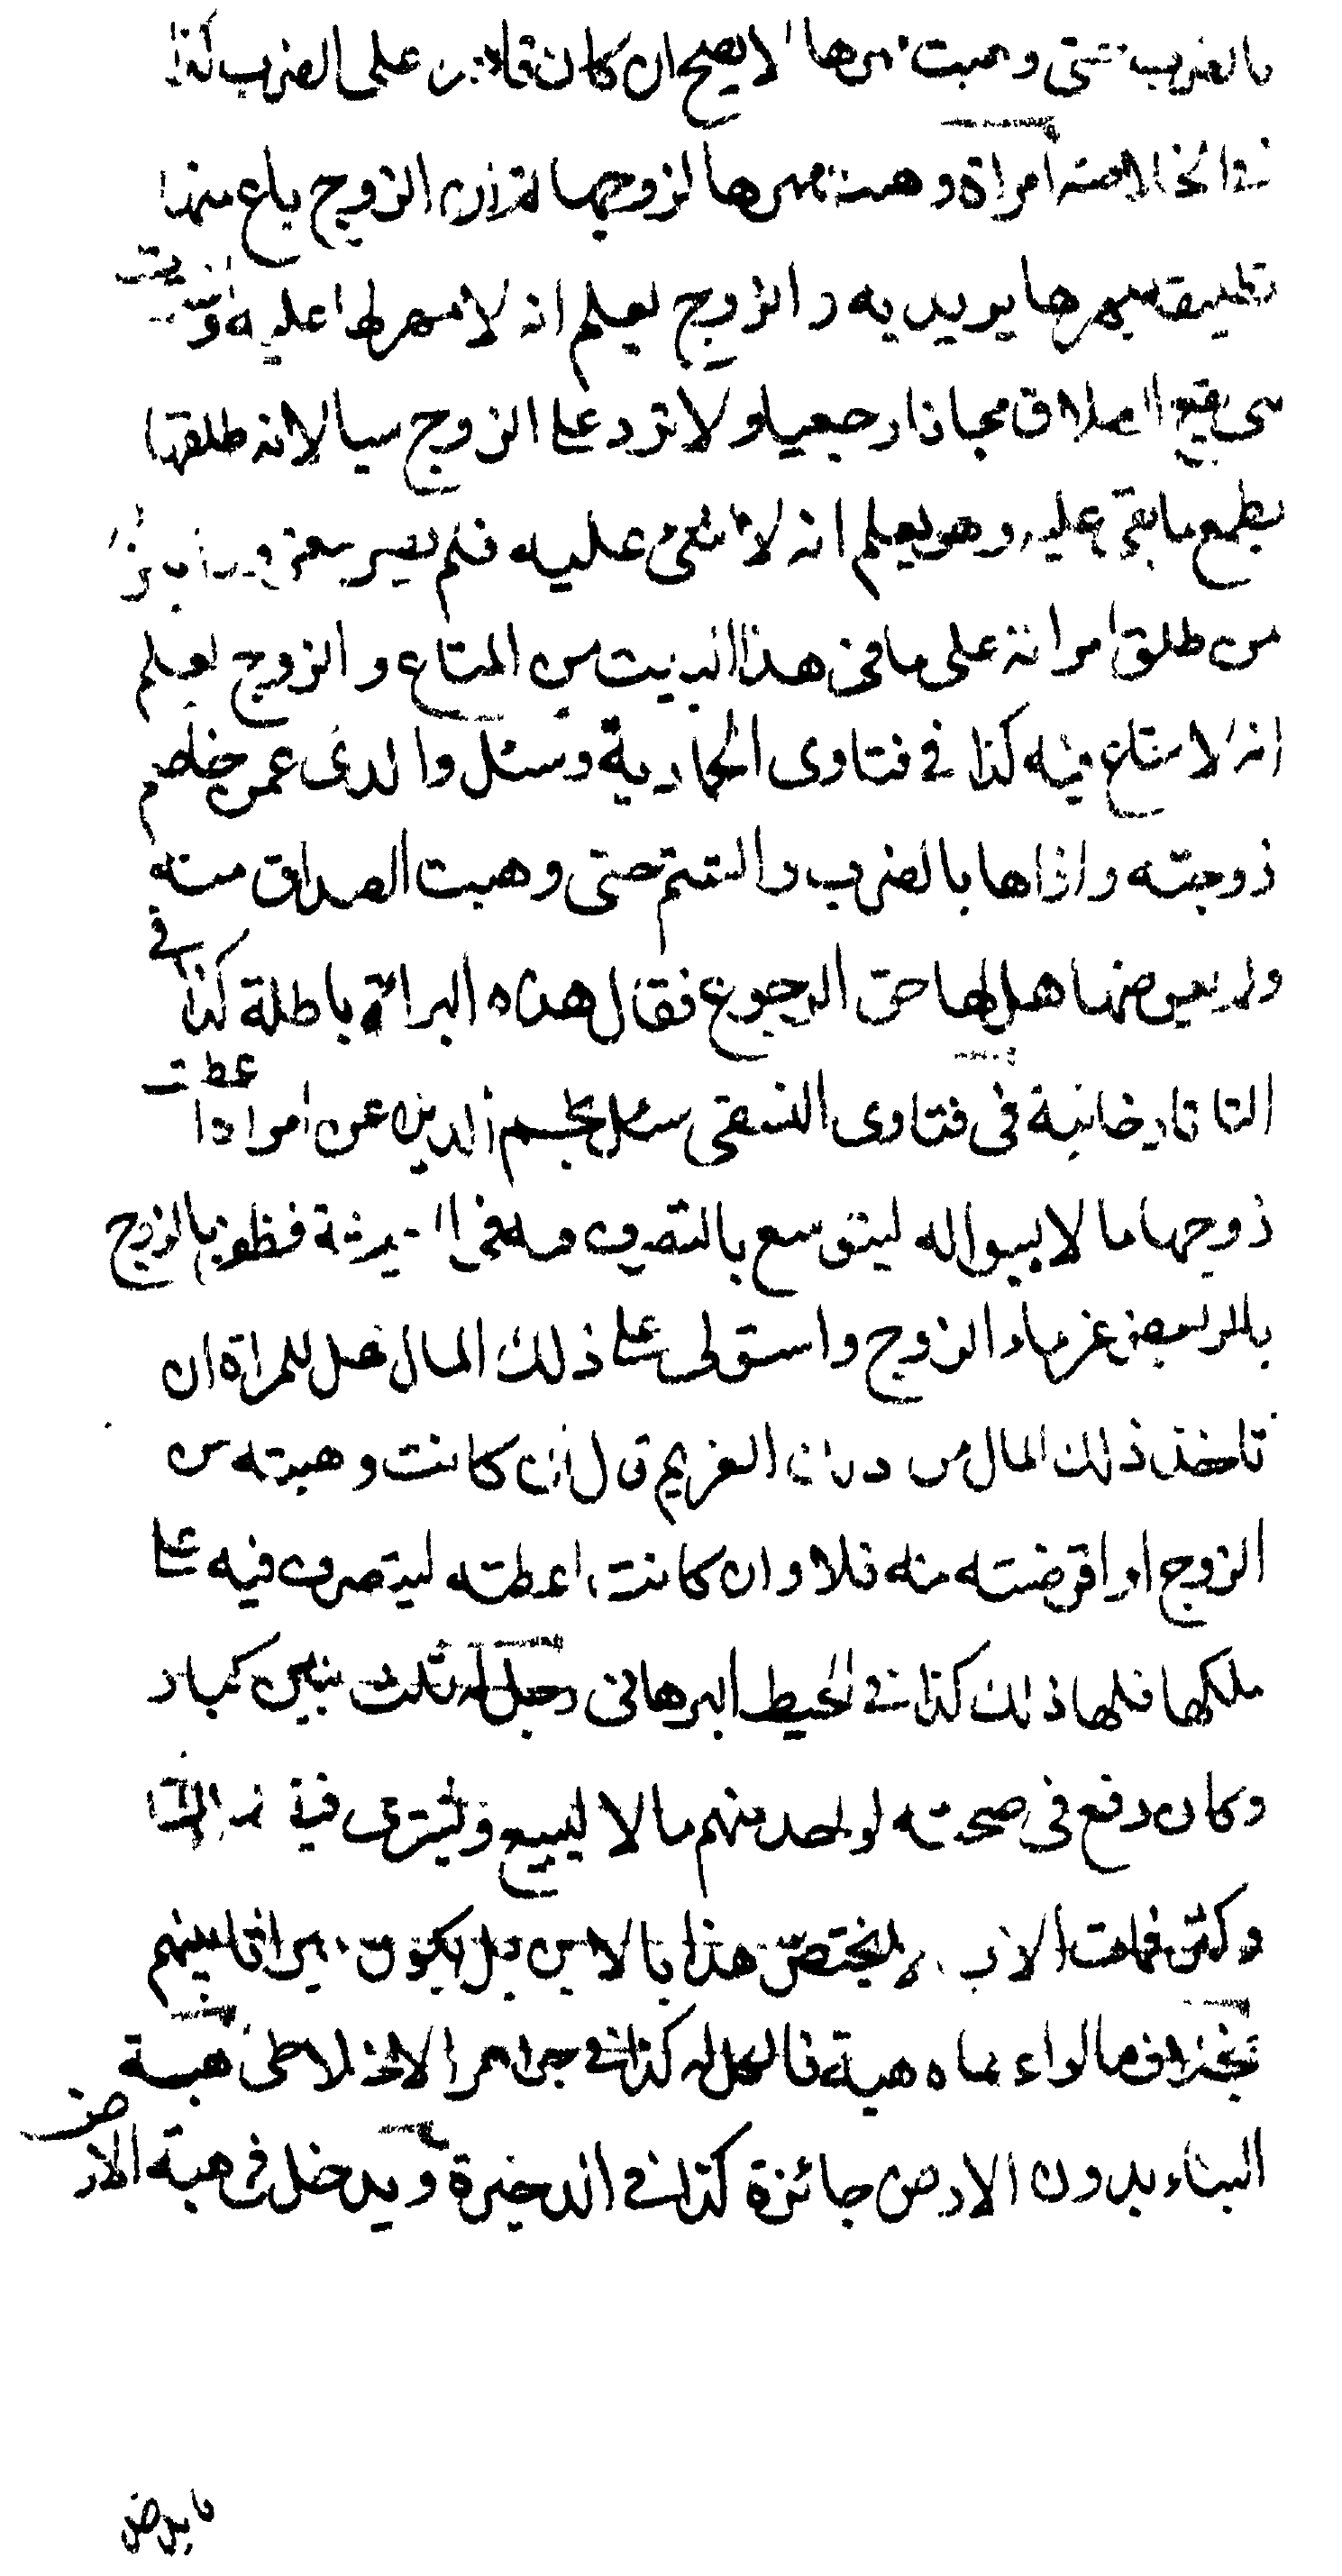 بالضرب حتى وهبت مهرها لا يصح ان كان قادرا على الضرب كذا
في الخلاصة امراة وهبت مهرها لزوجها ثم ان الزوج باع منها
تطليقة بمهرها يريد به والزوج يعلم انه لا مهر لها عليه واشترت
يقع الطلاق مجانا رجعيا ولا ترد على الزوج شيا لانه طلقها
بطمع ما بقي عليه وهو يعلم انه لا شئ عليه فلم يصر
من طلق امراته على ما في هذا البيت من المتاع والزوج يعلم
انه لا متاع فيه كذا في فتاوى الحمادية وسئل والدى عمن خاصم
زوجته واذاها بالضرب والشتم حتى وهبت الصداق منه
ولم يعوضها هل لها حق الرجوع فقال هذه البرائة باطلة كذا في
التاتارخانية في فتاوى النسفى سئل نجم الدين عن امراة اعطت
زوجها مالا بسواله ليتوسع بالتصرف فظفر بالزوج
بعض غرماء الزوج واستولى على ذلك المال هل للمراة ان
تاخذ ذلك المال من ذلك الغريم قال ان كانت وهبته من
الزوج او اقرضته منه فلا وان كانت اعطته ليتصرف فيه على
ملكها فلها ذلك كذا في المحيط البرهاني رجل له ثلث بنين كبار
وكان دفع في صحته لواحد منهم مالا ليبيع ويشترى فيه
وكثر فمات الاب لا يختص هذا بالابن بل يكون ميراثا بينهم
قالوا هبة فالكل له كذا في جواهر الاخلاطى هبة
البناء بدون الارض جائزة كذا في الذخيرة ويدخل في هبة الارض
ما يدخل